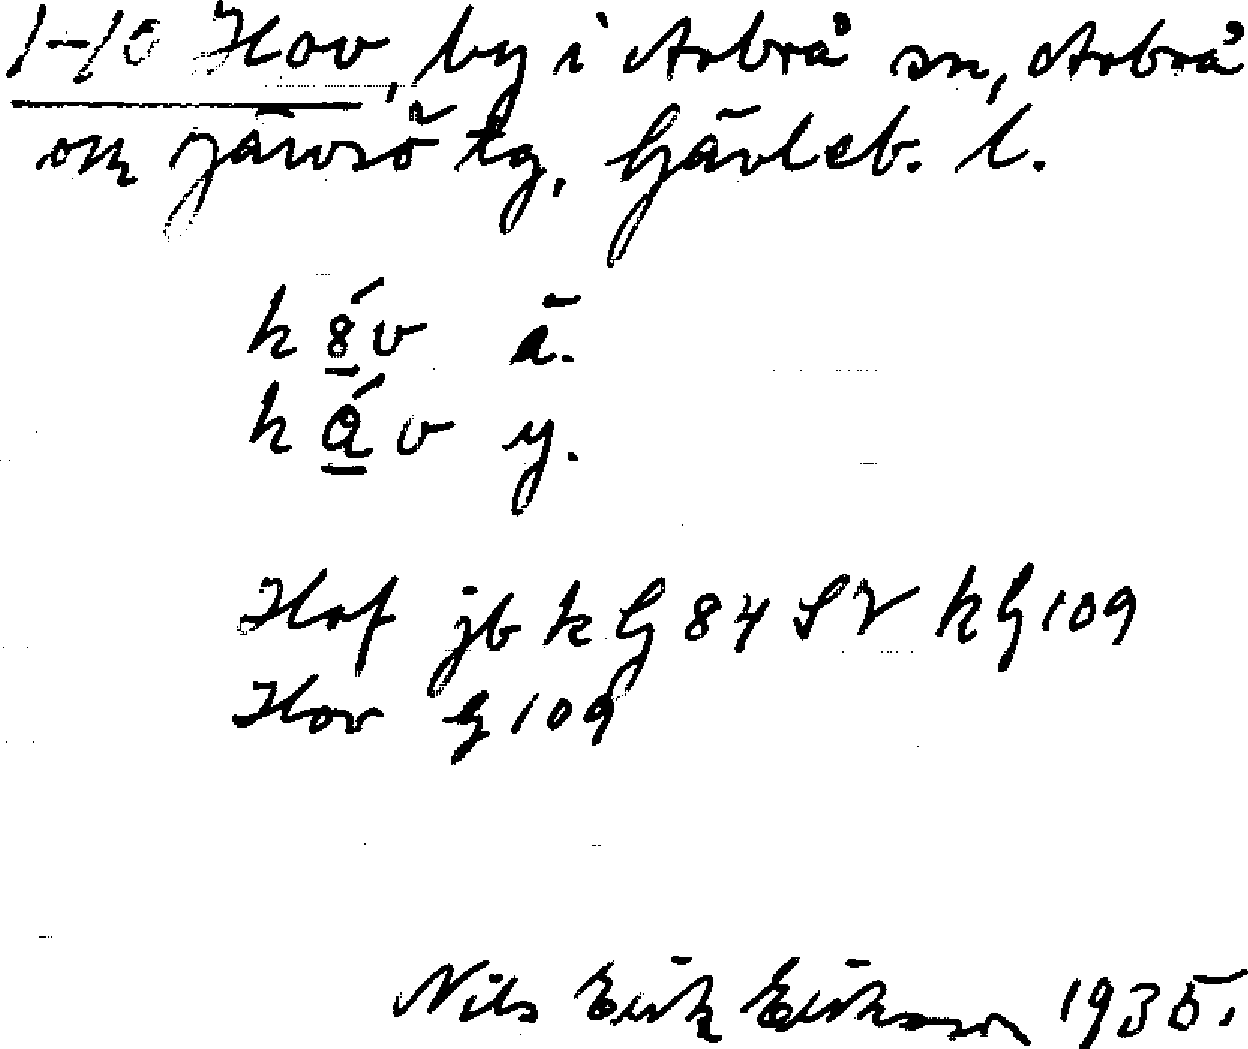 1-10 Hov, by i Arbrå sn, Arbrå
om Järvsö tg, Gävleb. l.
h 8́ v ä.
h ά v y.
Hof jb k G 84 S V k G 109
Hov G 109
Nils Erik Eriksson 1935.